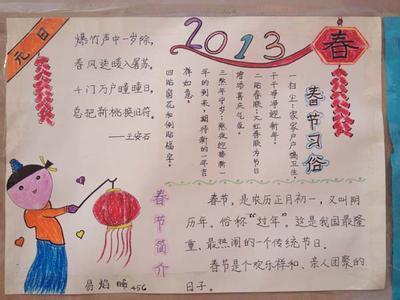 元日
爆竹声中一岁除,
春风送暖入屠苏。
千门万户曈曈日,
总把新桃换旧符。
——王安石
2013
春
春节习俗
一扫尘:家家户户搞卫生,
干干净净迎新年。
二贴春联:大红春联为节日
增添喜庆气氛。
三熬年守岁:熬夜迎接新一
年的到来,期待新的一年吉
祥如意。
四贴窗花和倒贴福字。
春节简介
春节,是农历正月初一,又叫阴
历年,俗称“过年”。这是我国最隆
重、最热闹的一个传统节日。
春节是个欢乐祥和、亲人团聚的
日子。
456